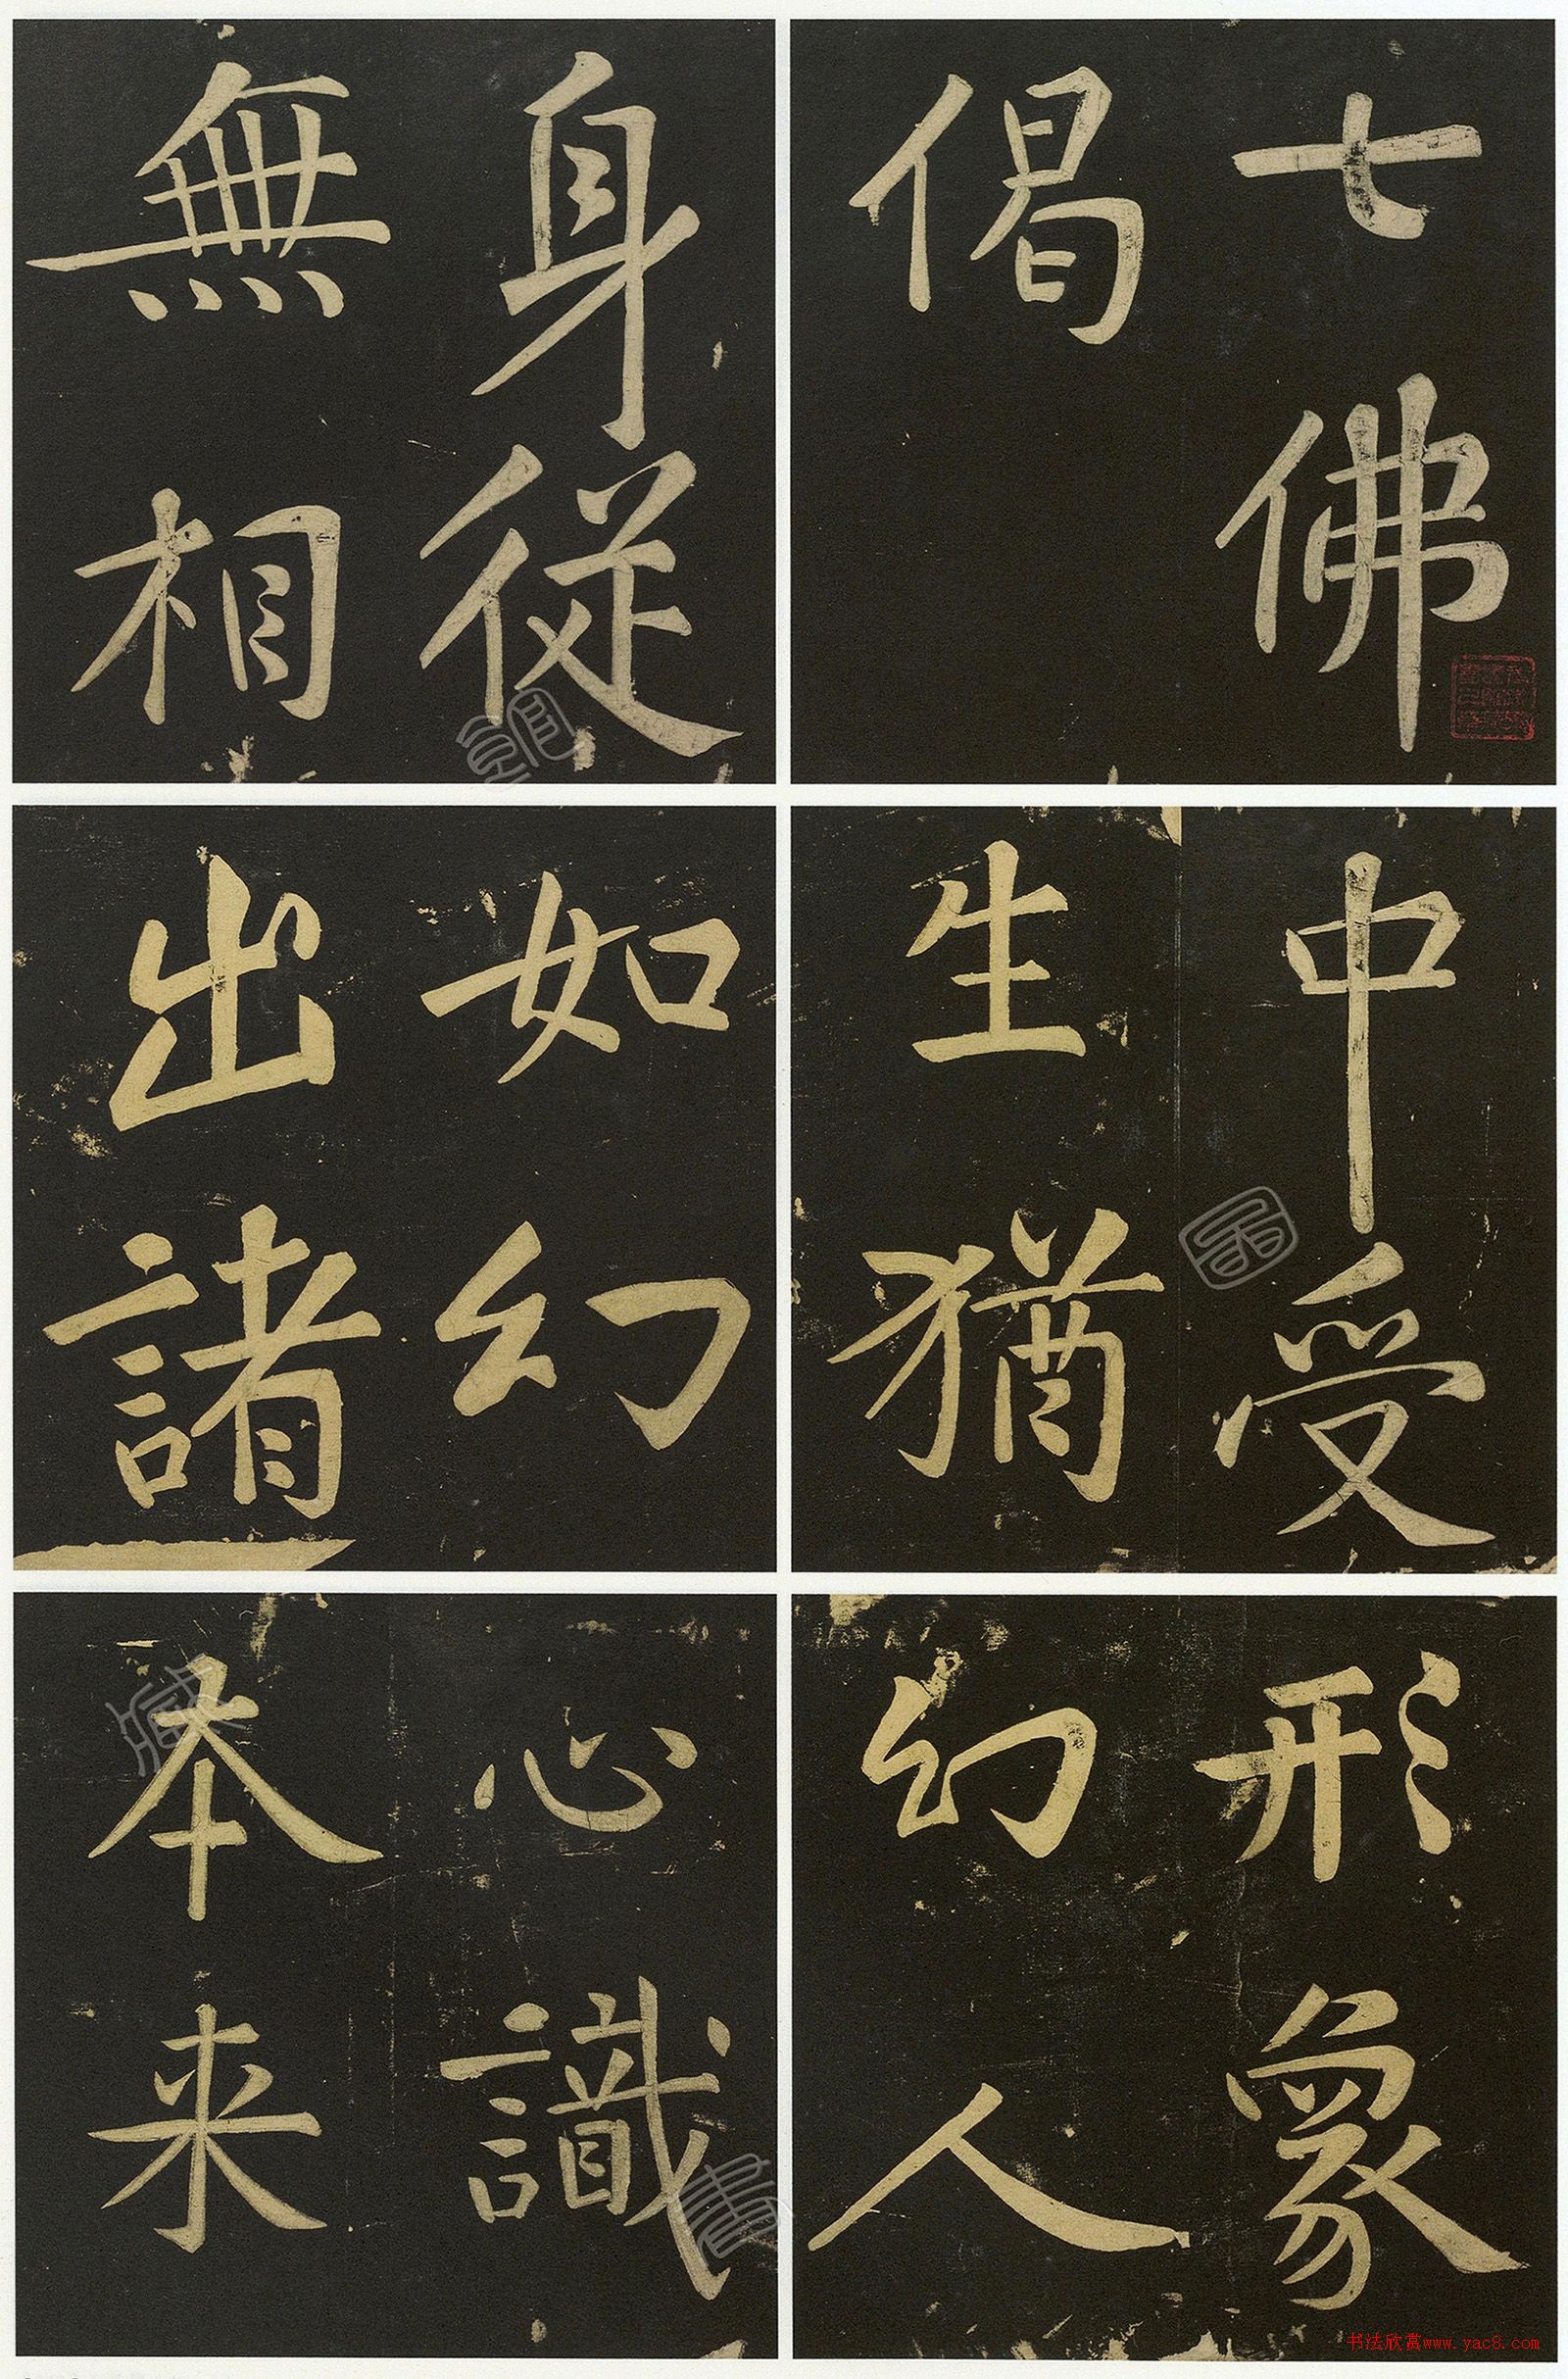 七佛
偈
身從
無相
中受
生猶
如幻
出諸
形象
幻人
心識
本来
书法欣赏www.yac8.com